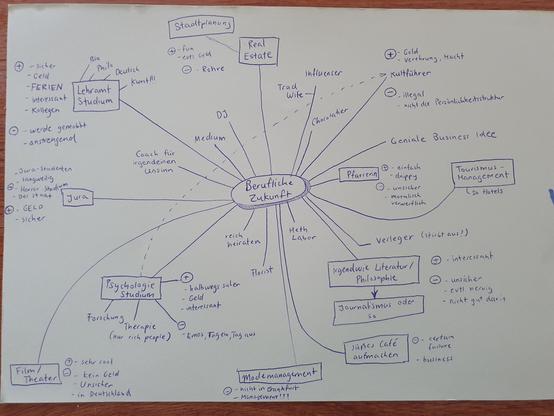 Berufliche
Zukunft
Stadtplanung
Real
Estate
+ - fun
- evtl Geld
- - Rehre
Influencer
Trad
Wife
Chocolatier
+ - Geld
- Verehrung, Macht
Kultführer
- - illegal
- nicht die Persönlichkeitsstruktur
Geniale Business Idee
Pfarrerin
+ - einfach
- happy
- - unsicher
- moralisch
verwerflich
Tourismus-
Management
↳ In Hotels
Verleger (stirbt aus!)
irgendwie Literatur/
Philosophie
Journalismus oder
so
+ - interessant
- - unsicher
- evtl nervig
- nicht gut darin
süßes Café
aufmachen
- - certain
failure
- business
Meth
Labor
Modemanagement
- - nicht in Frankfurt
- Management!!!
Florist
reich
heiraten
Psychologie
Studium
+ - halbwegs sicher
- Geld
- interessant
- - Emos, Tag ein, Tag aus
Forschung
Therapie
(nur rich people)
Film/
Theater
+ - sehr cool
- - kein Geld
- Unsicher
- in Deutschland
Jura
- Jura-Studenten
- langweilig
- Horror Studium
- Der Staat
+ - GELD
- sicher
Coach für
irgendeinen
Unsinn
Medium
DJ
Lehramt
Studium
Bio
Philo
Deutsch
Kunst
+ - sicher
- Geld
- FERIEN
- interessant
- Kollegen
- - werde gemobbt
- anstrengend